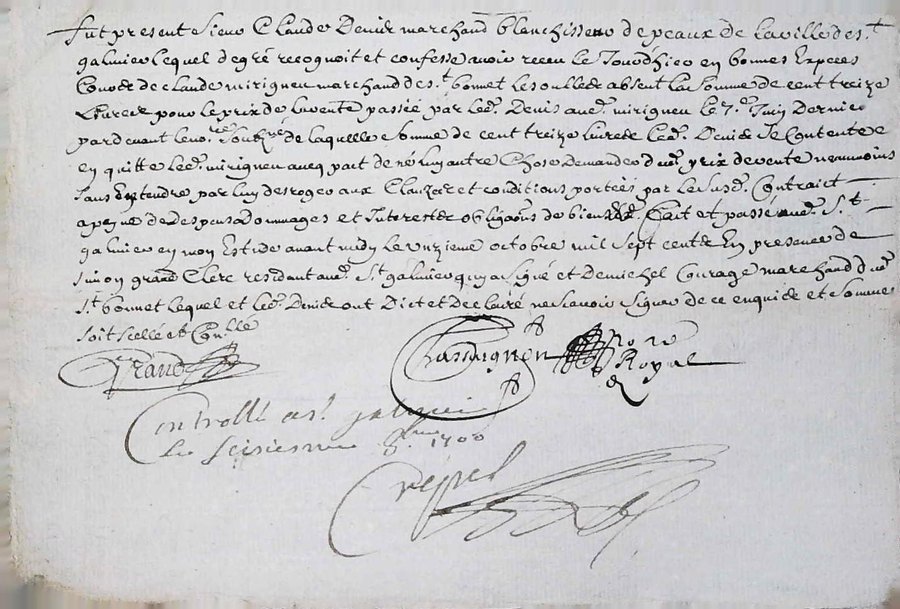 fut present Sieur Claude Denis marchand blanchisseur de peaux de la ville de St
galmier lequel de gré recognoit et confesse avoir receu le Jourdhier en bonnes Especes
de claude mirigneu marchand de St bonnet les oulles absent la somme de cent treize
Livres pour le prix de la vente passée par led. Denis aud. mirigneu le 7e Juin Dernier
par devant le nore Soubzné de laquelle somme de cent treize livres led. Denis Se Contente e
en quitte led. mirigneu avecq pact de ne luy autre Chose demander dud. prix de vente neanmoins
sans Entendre par luy desroger aux Clauzes et conditions portées par le Susd. Contraict
a peyne de Despens Dommages et Interests obligaons de biens &c. Fait et passé aud. St
galmier en mon Estude avant midy le unzieme octobre mil Sept cents En presence de
simon grand Clerc residant aud. St galmier qui a signé et de michel Courage marchand dud.
St bonnet lequel et led. Denis ont Dict et declairé ne Scavoir Signer de ce enquis et Sommé
soit scellé et Conllé
Grand
Chassaignon nore Royal
Controllé a St galmier
Le seisiesme 8bre 1700
Crespel